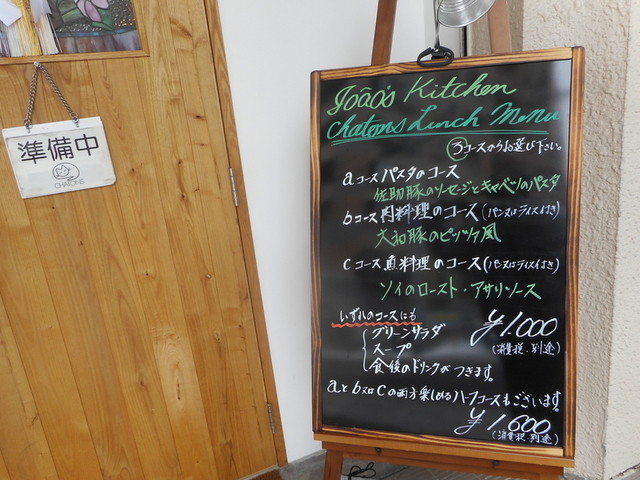 準備中
CHATONS
João's Kitchen
Chatons Lunch Menu
3コースからお選び下さい。
aコース パスタのコース
佐助豚のソーセージとキャベツのパスタ
bコース 肉料理のコース(パン又はライス付き)
大和豚のピッツァ風
cコース 魚料理のコース(パン又はライス付き)
ソイのロースト・アサリソース
いずれのコースにも
グリーンサラダ
スープ
食後のドリンクがつきます。
¥1.000
(消費税.別途)
aとb又はcの両方楽しめるハーフコースもございます。
¥1.600
(消費税.別途)